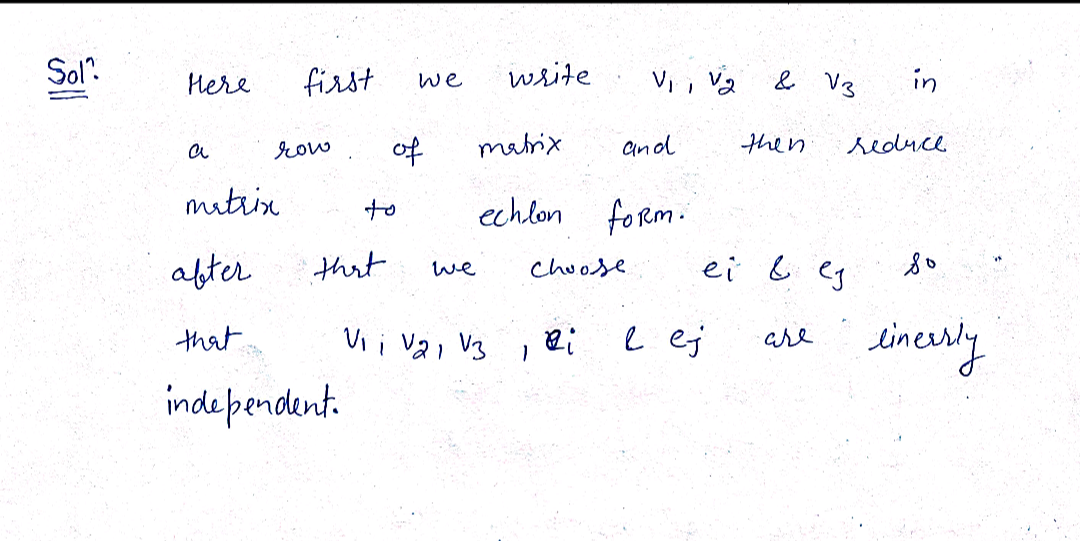 Solⁿ. Here first we write V1, V2 & V3 in
a row of matrix and then reduce
matrix to echlon form.
after that we choose ei & ej so
that V1, V2, V3, ei & ej are linearly
independent.